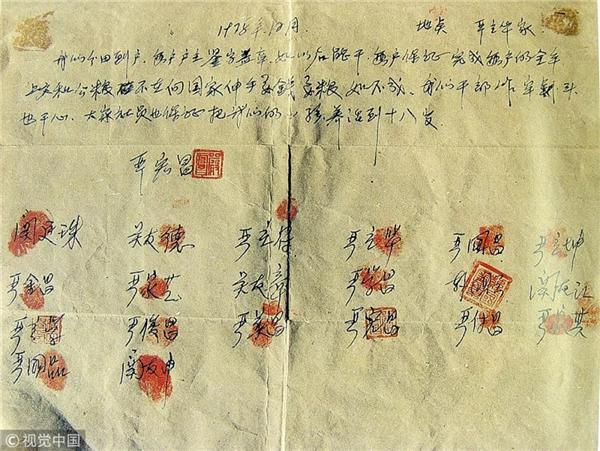 1978年12月 地点 严立华家
我们分田到户,每户户主签字盖章,如以后能干,每户保证完成每户的全年
上交和公粮,不在向国家伸手要钱要粮,如不成,我们干部作牢刹头
也干心,大家社员也保证把我们的小孩养活到十八岁
严宏昌
关廷珠 关友德 严立付 严立华 严国昌 严立坤
严金昌 严家芝 关友章 严学昌 韩国云 关友江
严立学 严俊昌 严美昌 严宏昌 严付昌 严家其
严国品 关友申
©视觉中国